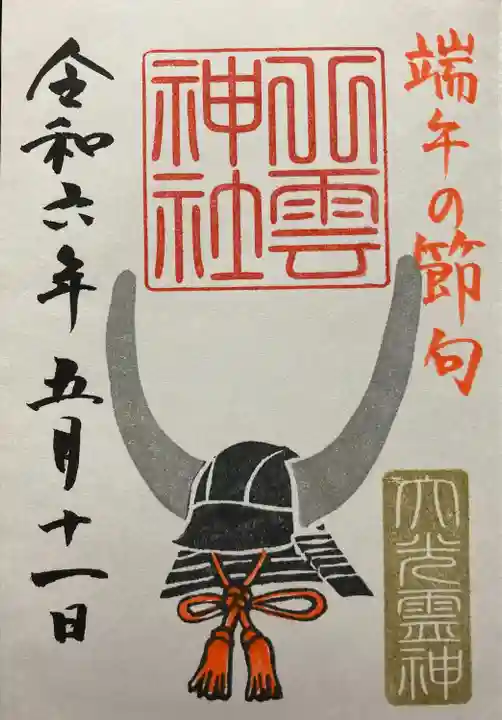 端午の節句
山雲
神社
大光霊神
令和六年五月十一日